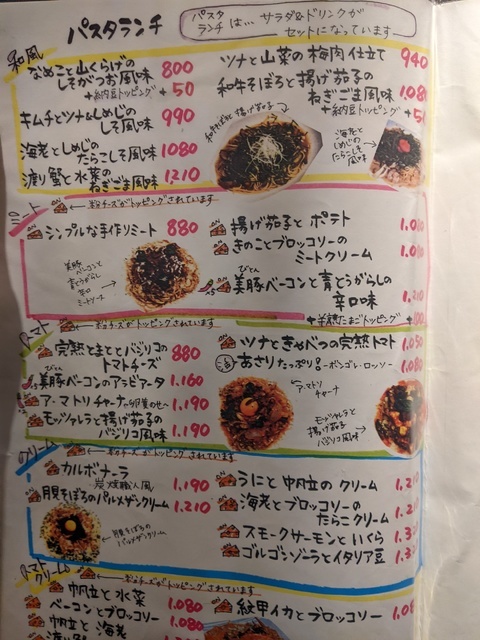 パスタランチ
パスタランチは... サラダ&ドリンクが
セットになっています
和風
なめこと山くらげの
しそがつお風味 800
+納豆トッピング +50
キムチとツナ&しめじの
しそ風味 990
海老としめじの
たらこしそ風味 1080
渡り蟹と水菜の
ねぎごま風味 1210
ツナと山菜の梅肉仕立て 940
和牛そぼろと揚げ茄子の
ねぎごま風味 1.080
+納豆トッピング +50
和牛そぼろと揚げ茄子
海老と
しめじの
たらこしそ
風味
ミート
粉チーズがトッピングされています
シンプルな手作りミート 880
美豚
ベーコンと
青とうがらし
辛口
ミートソース
揚げ茄子とポテト
きのことブロッコリーの
ミートクリーム
美豚ベーコンと青とうがらしの
びとん
辛口味
+半熟たまごトッピング
トマト
粉チーズがトッピングされています
完熟とまととバジリコの
トマトチーズ 880
びとん
美豚ベーコンのアラビアータ 1.160
ア・マトリチャーナ 1.190
モッツァレラと揚げ茄子の
バジリコ風味 1.190
ツナときゃべつの完熟トマト 1.050
あさりたっぷり!-ボンゴレ・ロッソ- 1.080
ア・マトリ
チャーナ
モッツァレラと
揚げ茄子
バジリコ風味
クリーム
粉チーズがトッピングされています
カルボナーラ
炭焼職人風 1.190
月見そぼろのパルメザンクリーム 1.210
月見そぼろの
パルメザンクリーム
うにと帆立のクリーム
海老とブロッコリーの
たらこクリーム
スモークサーモンといくら
ゴルゴンゾーラとイタリア豆
トマト
クリーム
粉チーズがトッピングされています
帆立と水菜 1.080
ベーコンとブロッコリー 1.080
帆立と海老
紋甲イカとブロッコリー